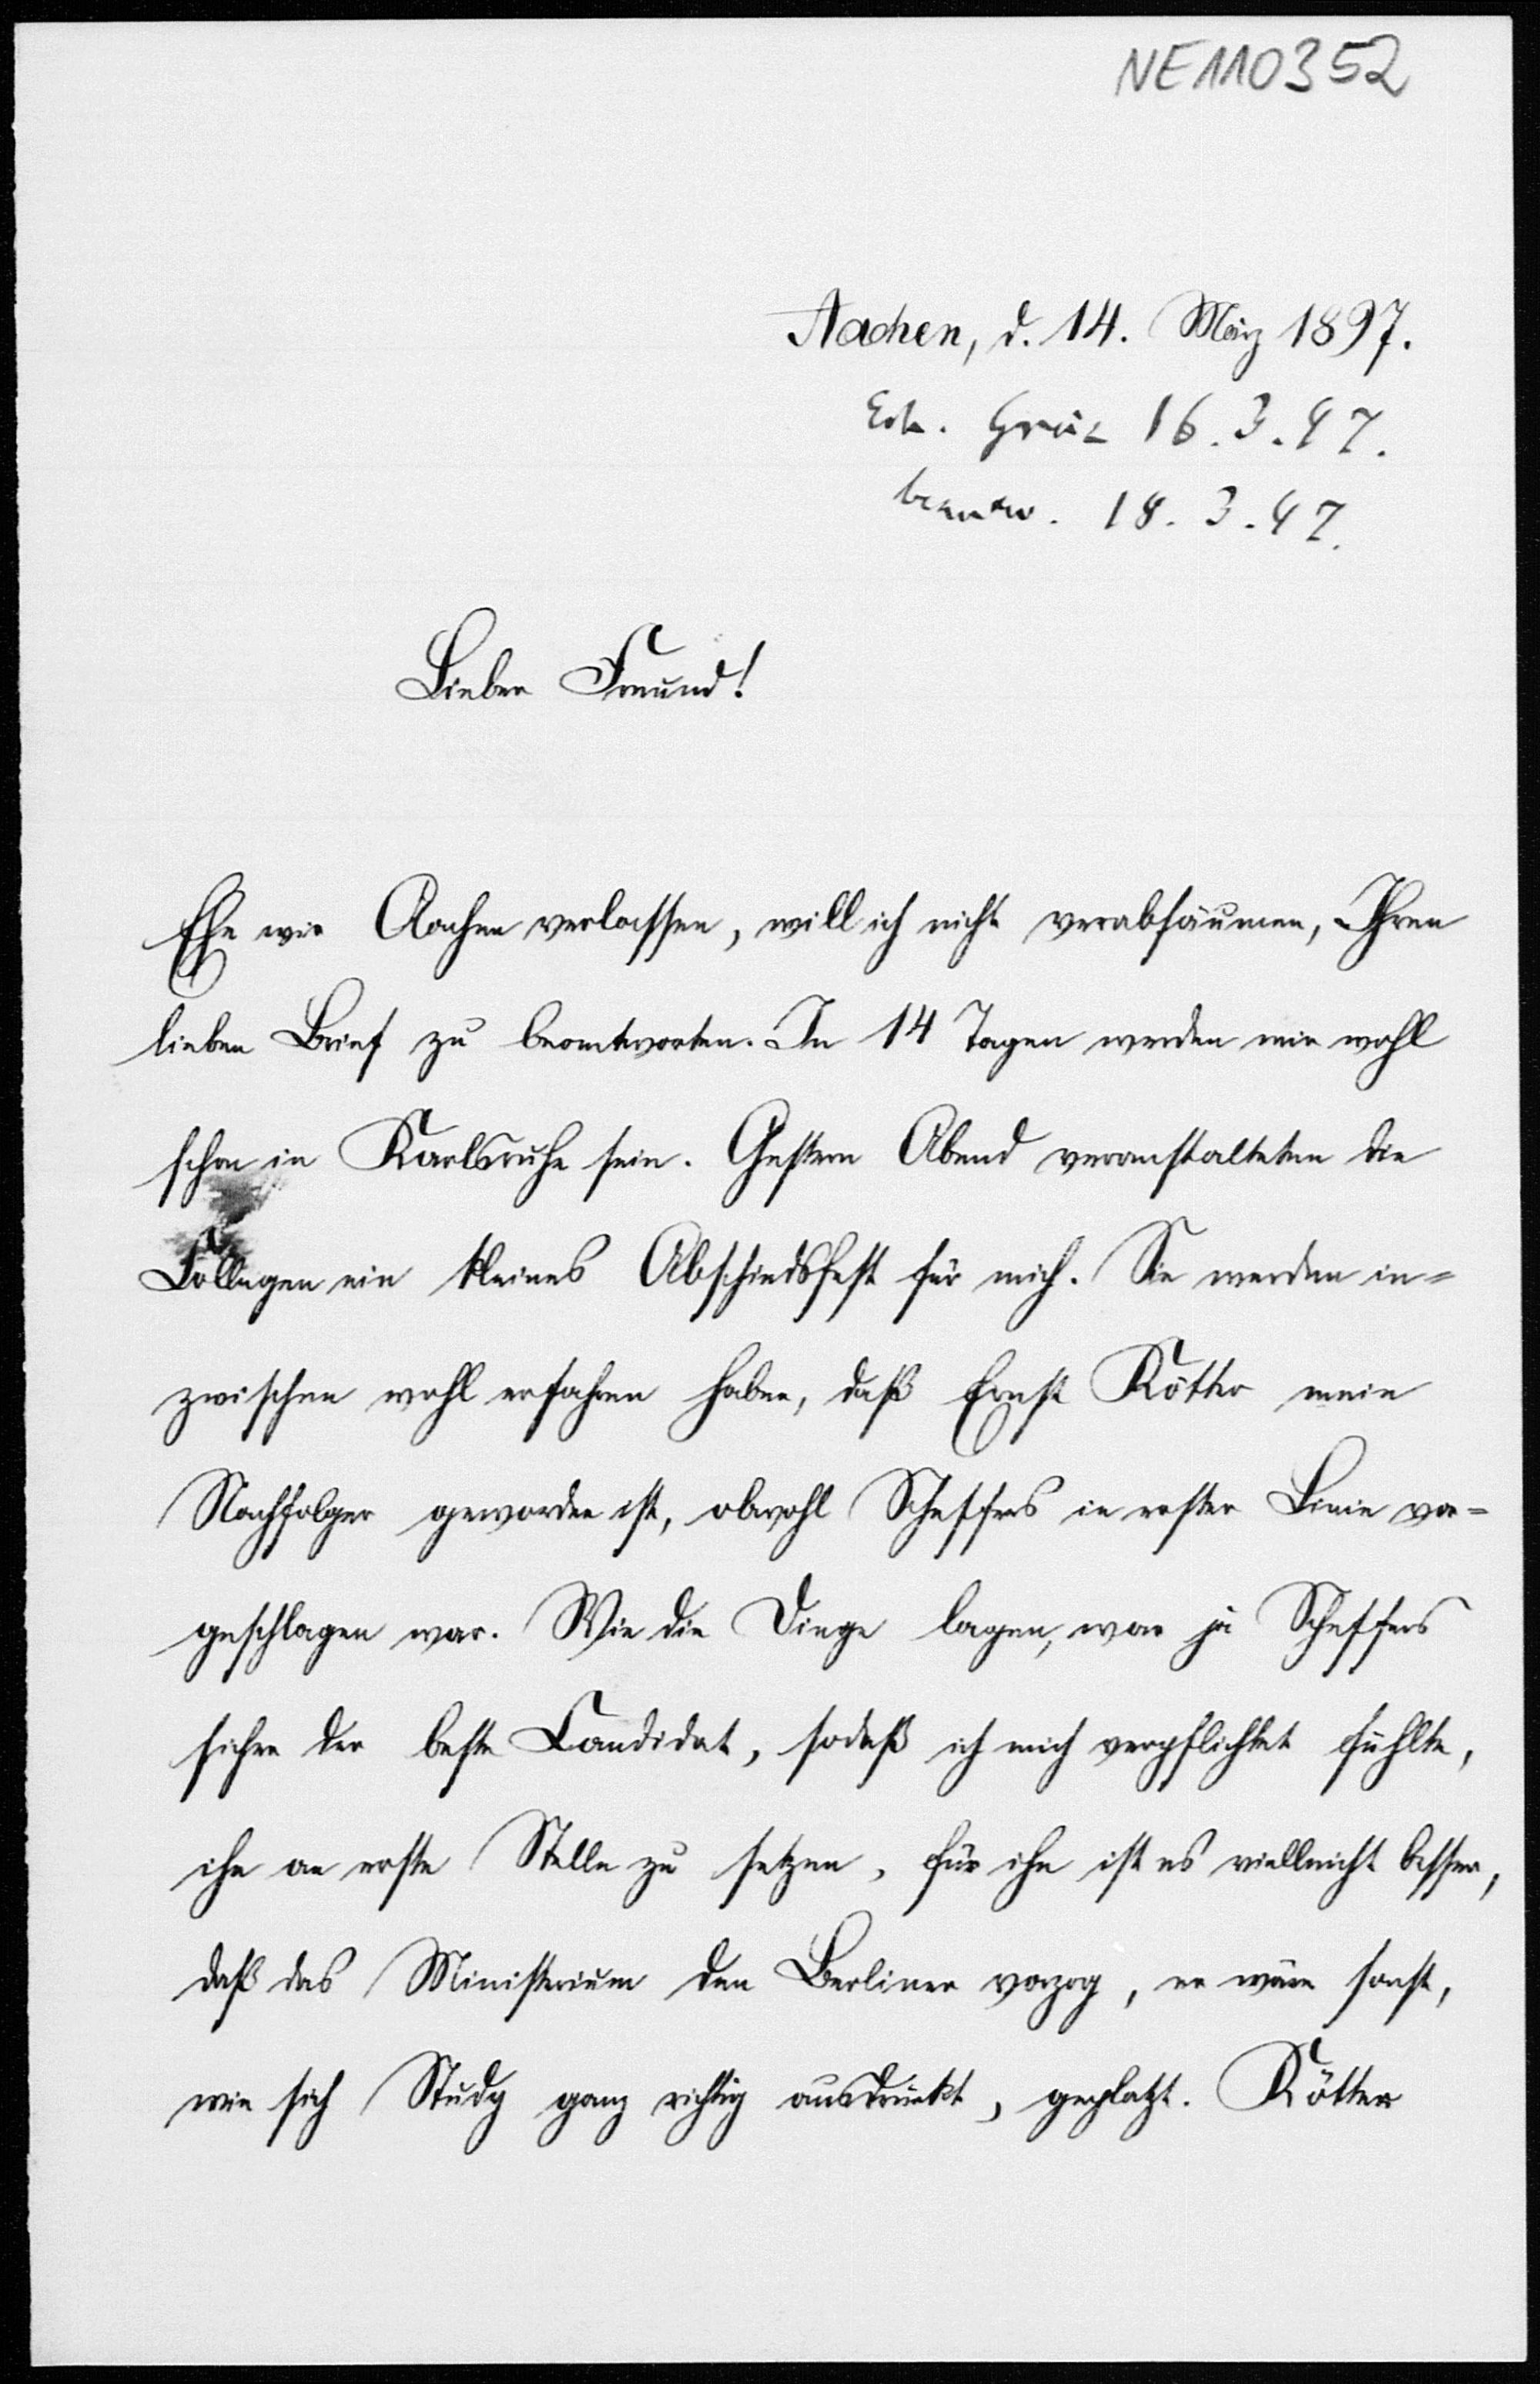 NE110352
Aachen, d. 14. März 1897.
Erh. Gräz 16.3.97.
beantw. 18.3.97.
Lieber Freund!
Ehe wir Aachen verlassen, will ich nicht verabsäumen, Ihren
lieben Brief zu beantworten. In 14 Tagen werden wir wohl
schon in Karlsruhe sein. Gestern Abend veranstalteten die
Collegen ein kleines Abschiedsfest für mich. Sie werden in=
zwischen wohl erfahren haben, daß Ernst Kötter mein
Nachfolger geworden ist, obwohl Scheffers in erster Linie vor=
geschlagen war. Wie die Dinge lagen, war ja Scheffers
sicher der beste Candidat, sodaß ich mich verpflichtet fühlte,
ihn an erste Stelle zu setzen, für ihn ist es vielleicht besser,
daß das Ministerium den Berliner vorzog, er wäre sonst,
wie sich Study ganz richtig ausdrückt, geplatzt. Kötter